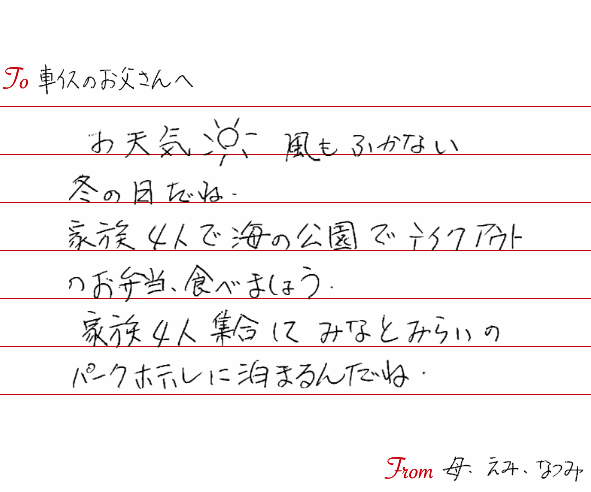 To 車イスのお父さんへ
お天気 風もふかない
冬の日だね.
家族4人で海の公園でテイクアウト
のお弁当、食べましょう.
家族4人集合して みなとみらいの
パークホテルに泊まるんだね.
From 母、えみ、なつみ